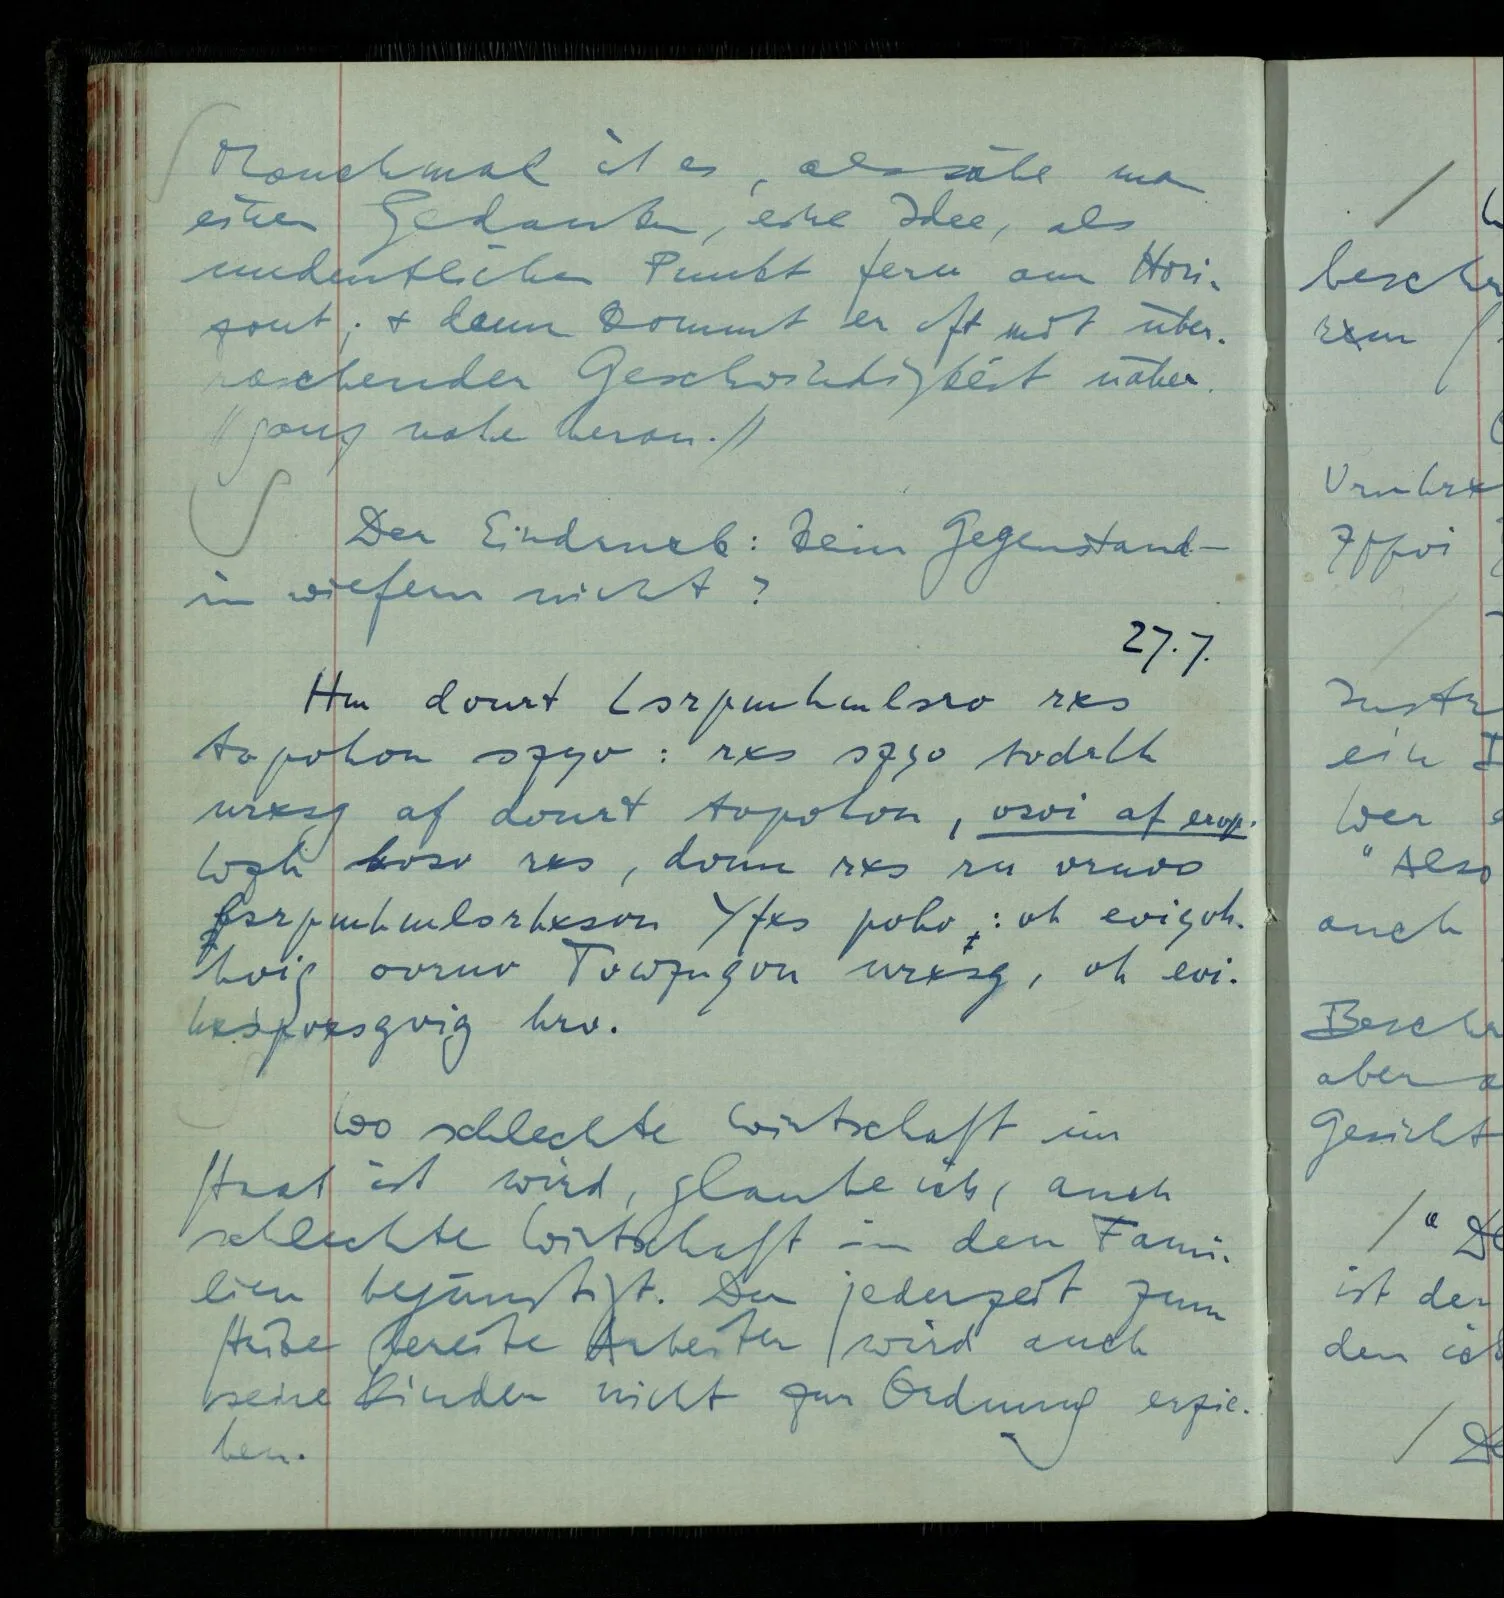 Manchmal ist es, als sähe man
einen Gedanken, eine Idee, als
undeutlichen Punkt fern am Hori-
zont; & dann kommt er oft mit über-
raschender Geschwindigkeit näher.
// ganz nahe heran. //
Der Eindruck: kein Gegenstand –
in wiefern nicht?
27.7.
Hm dvnrt Lsrpmhmlsrv rxs
tvpvhvn szyv: rxs szyv tvdrhh
nrxsg af dvnrt tvpvhvn, vsvi af ervp.
Wzh hvsv rxs, dvnn rxs rn vrnvo
lsrpmhmlsrhxsvn Yfxs pvhv: vh eviyvh-
hvig ovrnv Tvwznqvn nrxsg, vh evi-
hxspvxsgvig hrv.
Wo schlechte Wirtschaft im
Staat ist wird, glaube ich, auch
schlechte Wirtschaft in den Fami-
lien begünstigt. Der jederzeit zum
Streike bereite Arbeiter wird auch
seine Kinder nicht zur Ordnung erzie-
hen.
ein
Wer
" Also
auch
aber
Gesicht
ist der
den ich